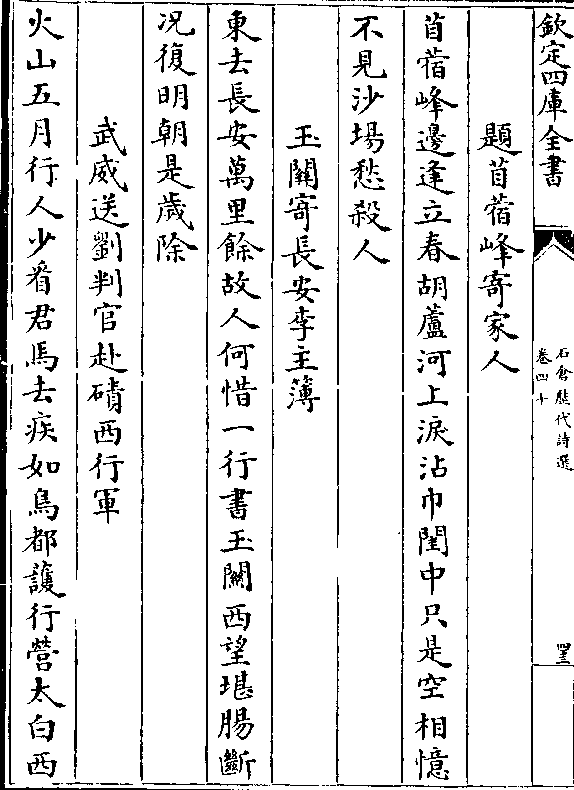 欽定四庫全書
石倉歷代詩選
卷四十
題苜蓿峰寄家人
苜蓿峰邊逢立春胡蘆河上淚沾巾閨中只是空相憶
不見沙場愁殺人
玉關寄長安李主簿
東去長安萬里餘故人何惜一行書玉關西望堪腸斷
況復明朝是歲除
武威送劉判官赴磧西行軍
火山五月行人少看君馬去疾如鳥都護行營太白西